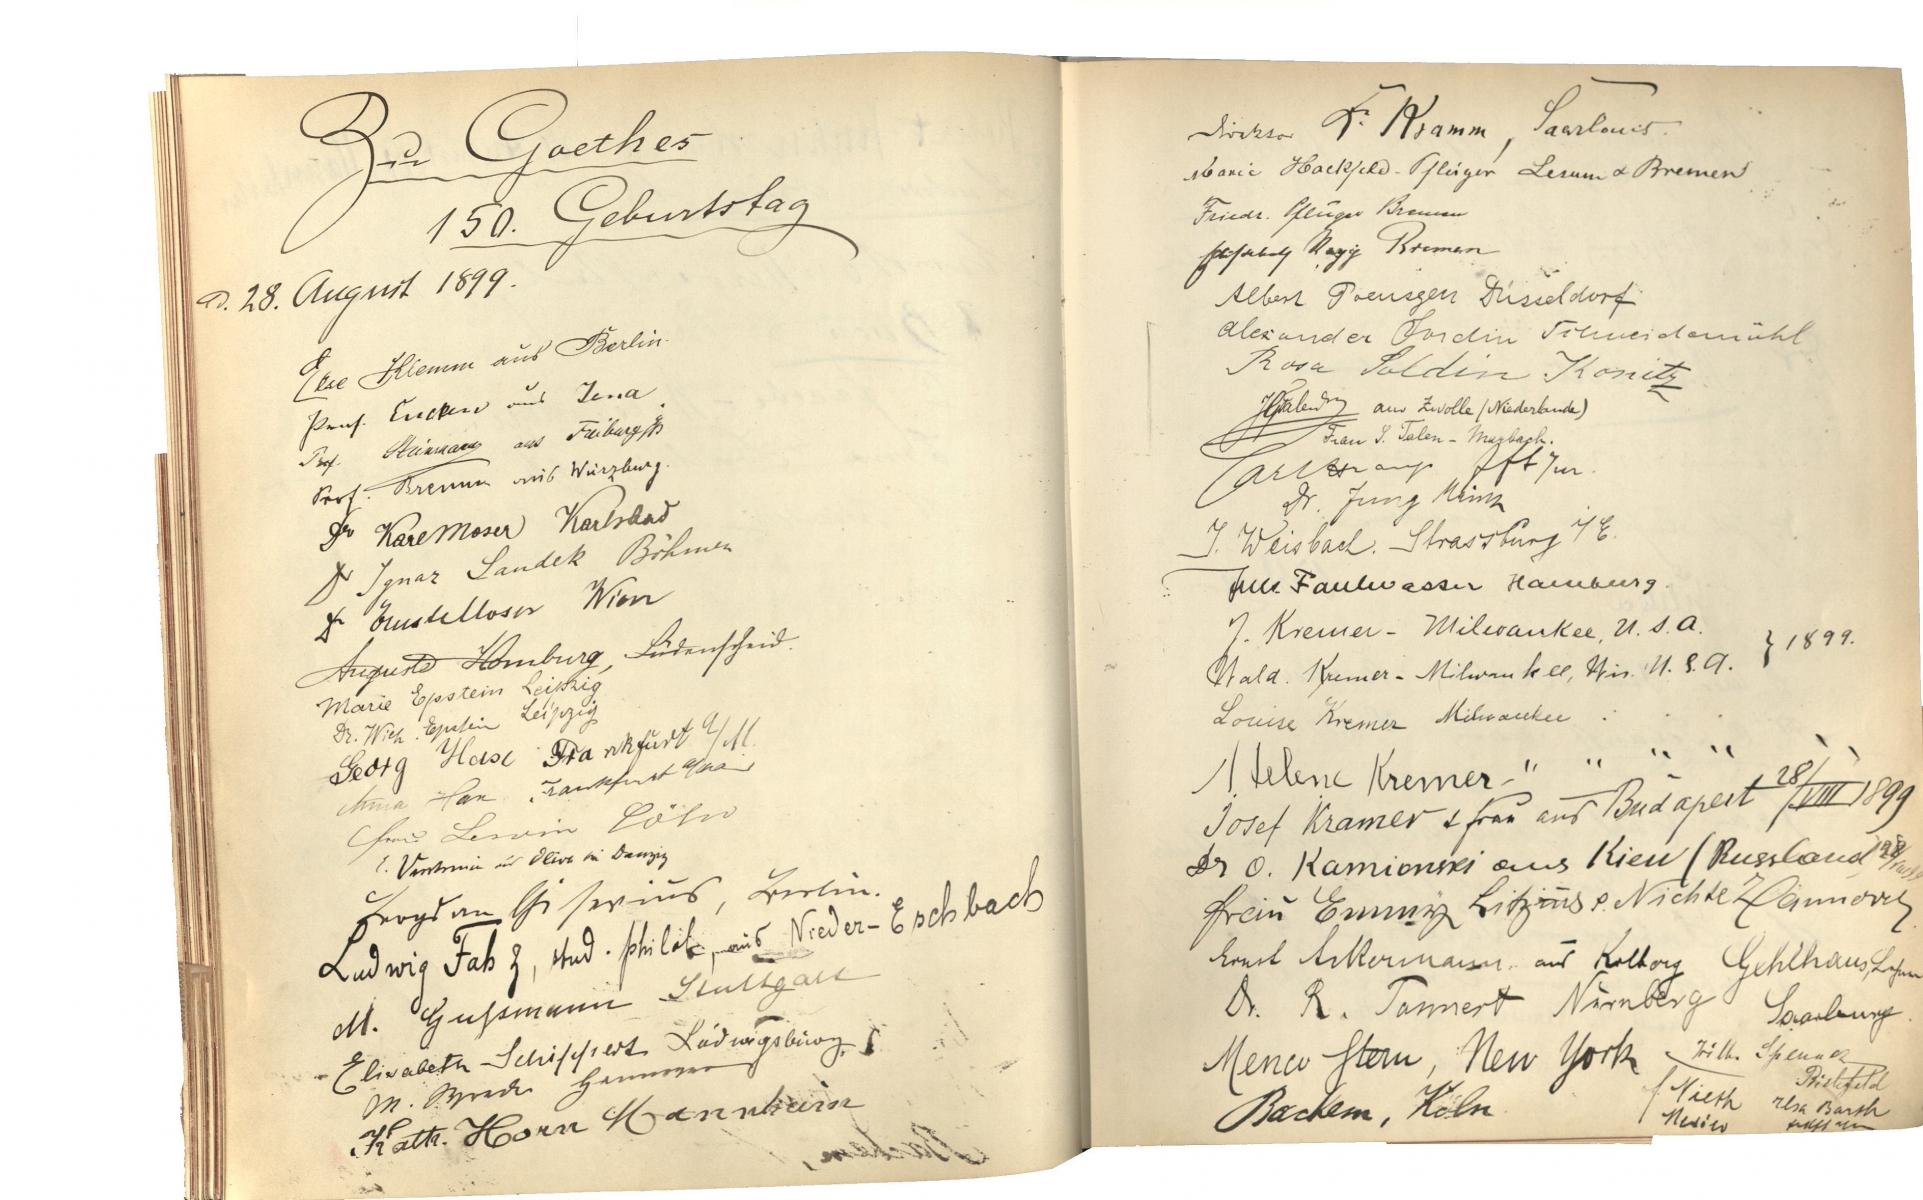 Zu Goethes
150. Geburtstag
d. 28. August 1899.
Else Klemm aus Berlin.
Prof. Eucken aus Jena
Prof. Steinmann aus Freiburg i/B
Prof. Bremm aus Würzburg.
Dr Karl Moser Karlsbad
Dr Ignaz Landek Böhmen
Dr Ernst Moser Wien
Auguste Homburg, Lüdenscheid.
Marie Epstein Leipzig
Dr. Wich. Epstein Leipzig
Georg Hase Frankfurt a/M.
Anna Frankfurt a/Main
Frau Lewin Cöln
E. aus Oliva bei Danzig
Gisevius, Berlin.
Ludwig Fahz, stud. philol., aus Nieder-Eschbach
M. Gussmann Stuttgart
Elisabeth Schippert Ludwigsburg
M. Hannover
Kath. Horn Mannheim
Direktor F. Kramm, Saarlouis.
Marie Hackfeld-Pflüger Lesum & Bremen
Friedr. Pflüger Bremen
Bremen
Albert Poensgen Düsseldorf
Alexander Jordin Schneidemühl
Rosa Soldin Konitz
aus Zwolle (Niederlande)
Frau S. Talen-Marbach.
Carl
Dr. Jung Mainz
J. Weisbach. Strassburg i/E.
Jul. Faulwasser Hamburg.
J. Kremer - Milwaukee, U.S.A.
Wald. Kremer - Milwaukee, Wis. U.S.A. } 1899.
Louise Kremer Milwaukee
Helene Kremer - " " " "
Josef Kramer & Frau aus Budapest 28/VIII 1899
Dr O. Kamionski aus Kiew (Russland 28/
Frau Emmy Litzius & Nichte Hannover
Ernst Ackermann aus Kolberg Gehlhaus,
Dr. R. Tannert Nürnberg Saarburg.
Menco Stern, New York
Bachem, Köln
Bielefeld
Mexico
Elsa Barth